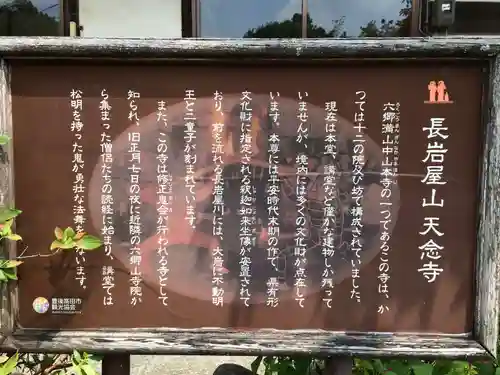 長岩屋山 天念寺
六郷満山中山本寺の一つであるこの寺は、か
つては十二の院及び坊で構成されていました。
現在は本堂、講堂など僅かな建物しか残って
いませんが、境内には多くの文化財が点在して
います。本尊には平安時代末期の作で、県有形
文化財に指定される釈迦如来坐像が安置されて
おり、前を流れる長岩屋川には、大岩に不動明
王と二童子が刻まれています。
また、この寺は修正鬼会が行われる寺として
知られ、旧正月七日の夜に近隣の六郷山寺院か
ら集まった僧侶たちの読経に始まり、講堂では
松明を持った鬼が勇壮な法舞を
います。
豊後高田市
観光協会